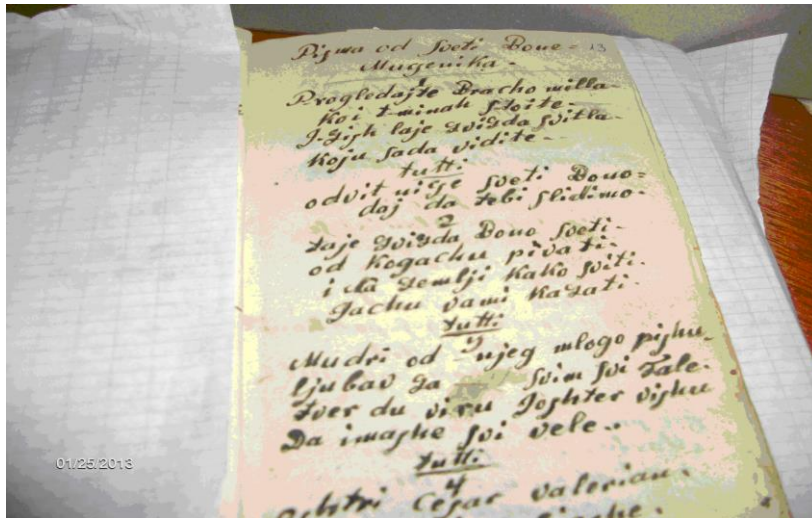 Pisma od Sveti Bone = 13
Mugenika.
1
Progledajte Bracho milla
Koi tminah Stoite.
laje Zvizda Svitla
Koju Sada vidite.
tutti
odvit nige Sveti Bono =
daj da tebi Slidimo
2
taje Zvizda Bono Sveti
od Kogachu pivati
i na zemlji Kako Sviti
Jachu vami Kazati
tutti
3
Mudri od njeg mlogo pishu
ljubav za Svim Svi Fale
tver du viru Joshter vishu
Da imashe Svi vele
tutti
4
Cesar valerian
01/25/2013